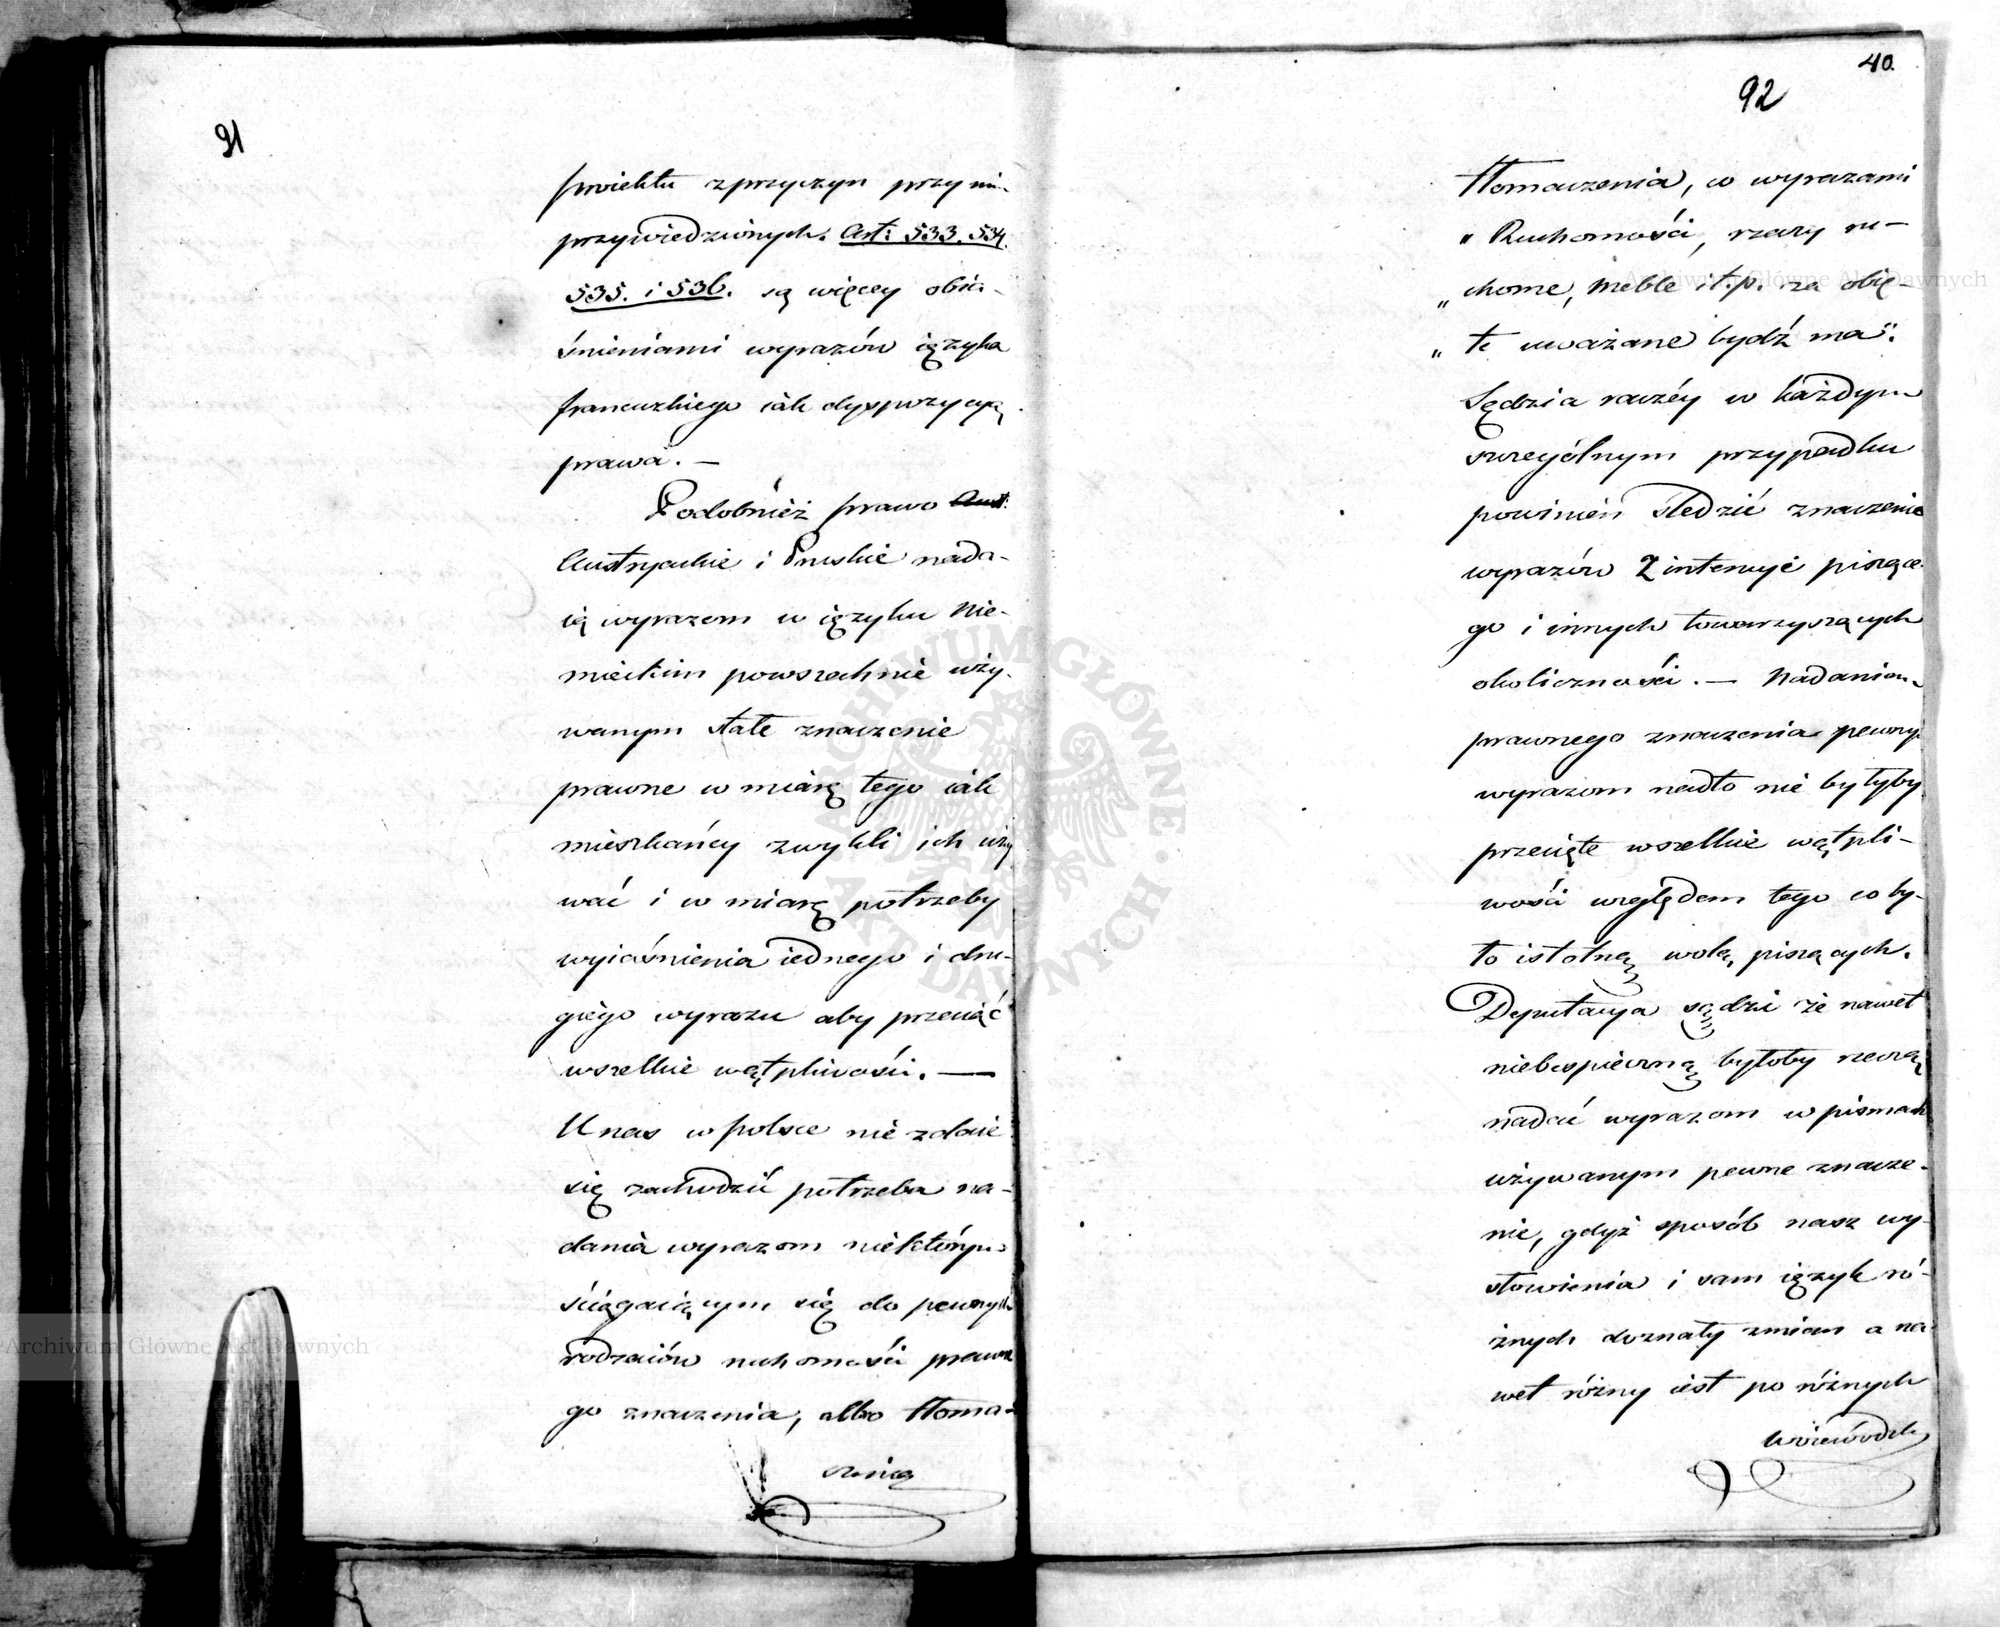 91
proiektu z przyczyn przy nim
przywiedzionych. Art: 533. 534.
535. i 536. są więcey obia-
śnieniami wyrazów ięzyka
francuzkiego iak dyspozycyą
prawa. —
Podobnież prawo Aust:
Austryackie i Pruskie nada-
ią wyrazom w ięzyku Nie-
mieckim powszechnie uży-
wanym stałe znaczenie
prawne w miarę tego iak
mieszkańcy zwykli ich uży
wać i w miarę potrzeby
wyiaśnienia iednego i dru-
giego wyrazu aby przeciąć
wszelkie wątpliwości. —
U nas w Polsce nie zdaie
się zachodzić potrzeba na-
dania wyrazom niektórym
ściągaiącym się do pewnych
rodzaiów ruchomości prawne
go znaczenia, albo tłoma-
czenia
40.
92
tłomaczenia, co wyrazami
„ Ruchomości, rzeczy ru-
„ chome, Meble i t.p. za obię-
„ te uważane bydź ma".
Sędzia raczéy w każdym
szczególnym przypadku
powinien śledzić znaczenie
wyrazów z intencyi piszące
go i innych towarzyszących
okoliczności. — Nadaniem
prawnego znaczenia pewny
wyrazom nadto nie byłyby
przecięte wszelkie wątpli-
wości względem tego co by-
ło istotną wolą piszących.
Deputacya sądzi że nawet
niebespieczną byłoby rzeczą
nadać wyrazom w pismach
używanym pewne znacze-
nie, gdyż sposób nasz wy-
słowienia i sam ięzyk ró-
żnych doznały zmian a na-
wet różny iest po różnych
Woiewództ